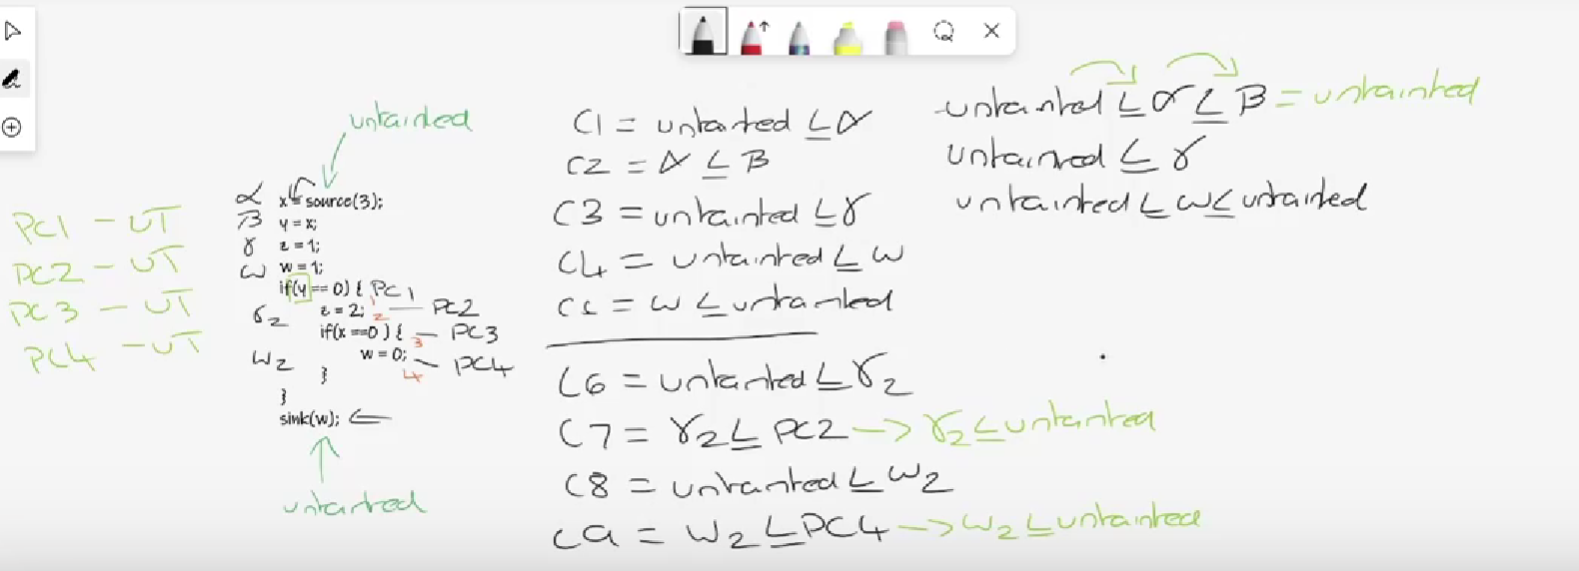 untainted
α x = source(3);
β y = x;
γ z = 1;
ω w = 1;
if(y == 0) { PC1
γ2 z = 2; 2 — PC2
if(x ==0 ) { — PC3
3
ω2 w = 0; — PC4
4
}
}
sink(w); ⇐
untainted
PC1 - UT
PC2 - UT
PC3 - UT
PC4 - UT
C1 = untainted ≤ α
C2 = α ≤ β
C3 = untainted ≤ γ
C4 = untainted ≤ ω
C5 = ω ≤ untainted
C6 = untainted ≤ γ2
C7 = γ2 ≤ PC2 -> γ2 ≤ untainted
C8 = untainted ≤ ω2
C9 = ω2 ≤ PC4 -> ω2 ≤ untainted
untainted ≤ α ≤ β = untainted
untainted ≤ γ
untainted ≤ ω ≤ untainted